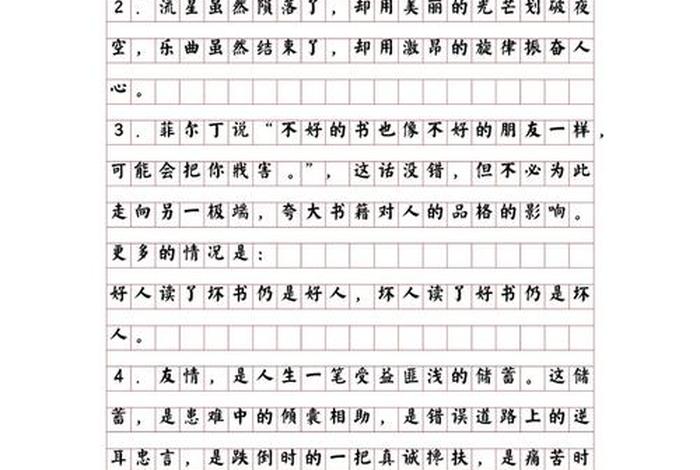 2．流星虽然陨落了，却用美丽的光芒划破夜
空，乐曲虽然结束了，却用激昂的旋律振奋人
心。
3．菲尔丁说“不好的书也像不好的朋友一样，
可能会把你戕害。”，这话没错，但不必为此
走向另一极端，夸大书籍对人的品格的影响。
更多的情况是：
好人读了坏书仍是好人，坏人读了好书仍是坏
人。
4．友情，是人生一笔受益匪浅的储蓄。这储
蓄，是患难中的倾囊相助，是错误道路上的逆
耳忠言，是跌倒时的一把真诚搀扶，是痛苦时